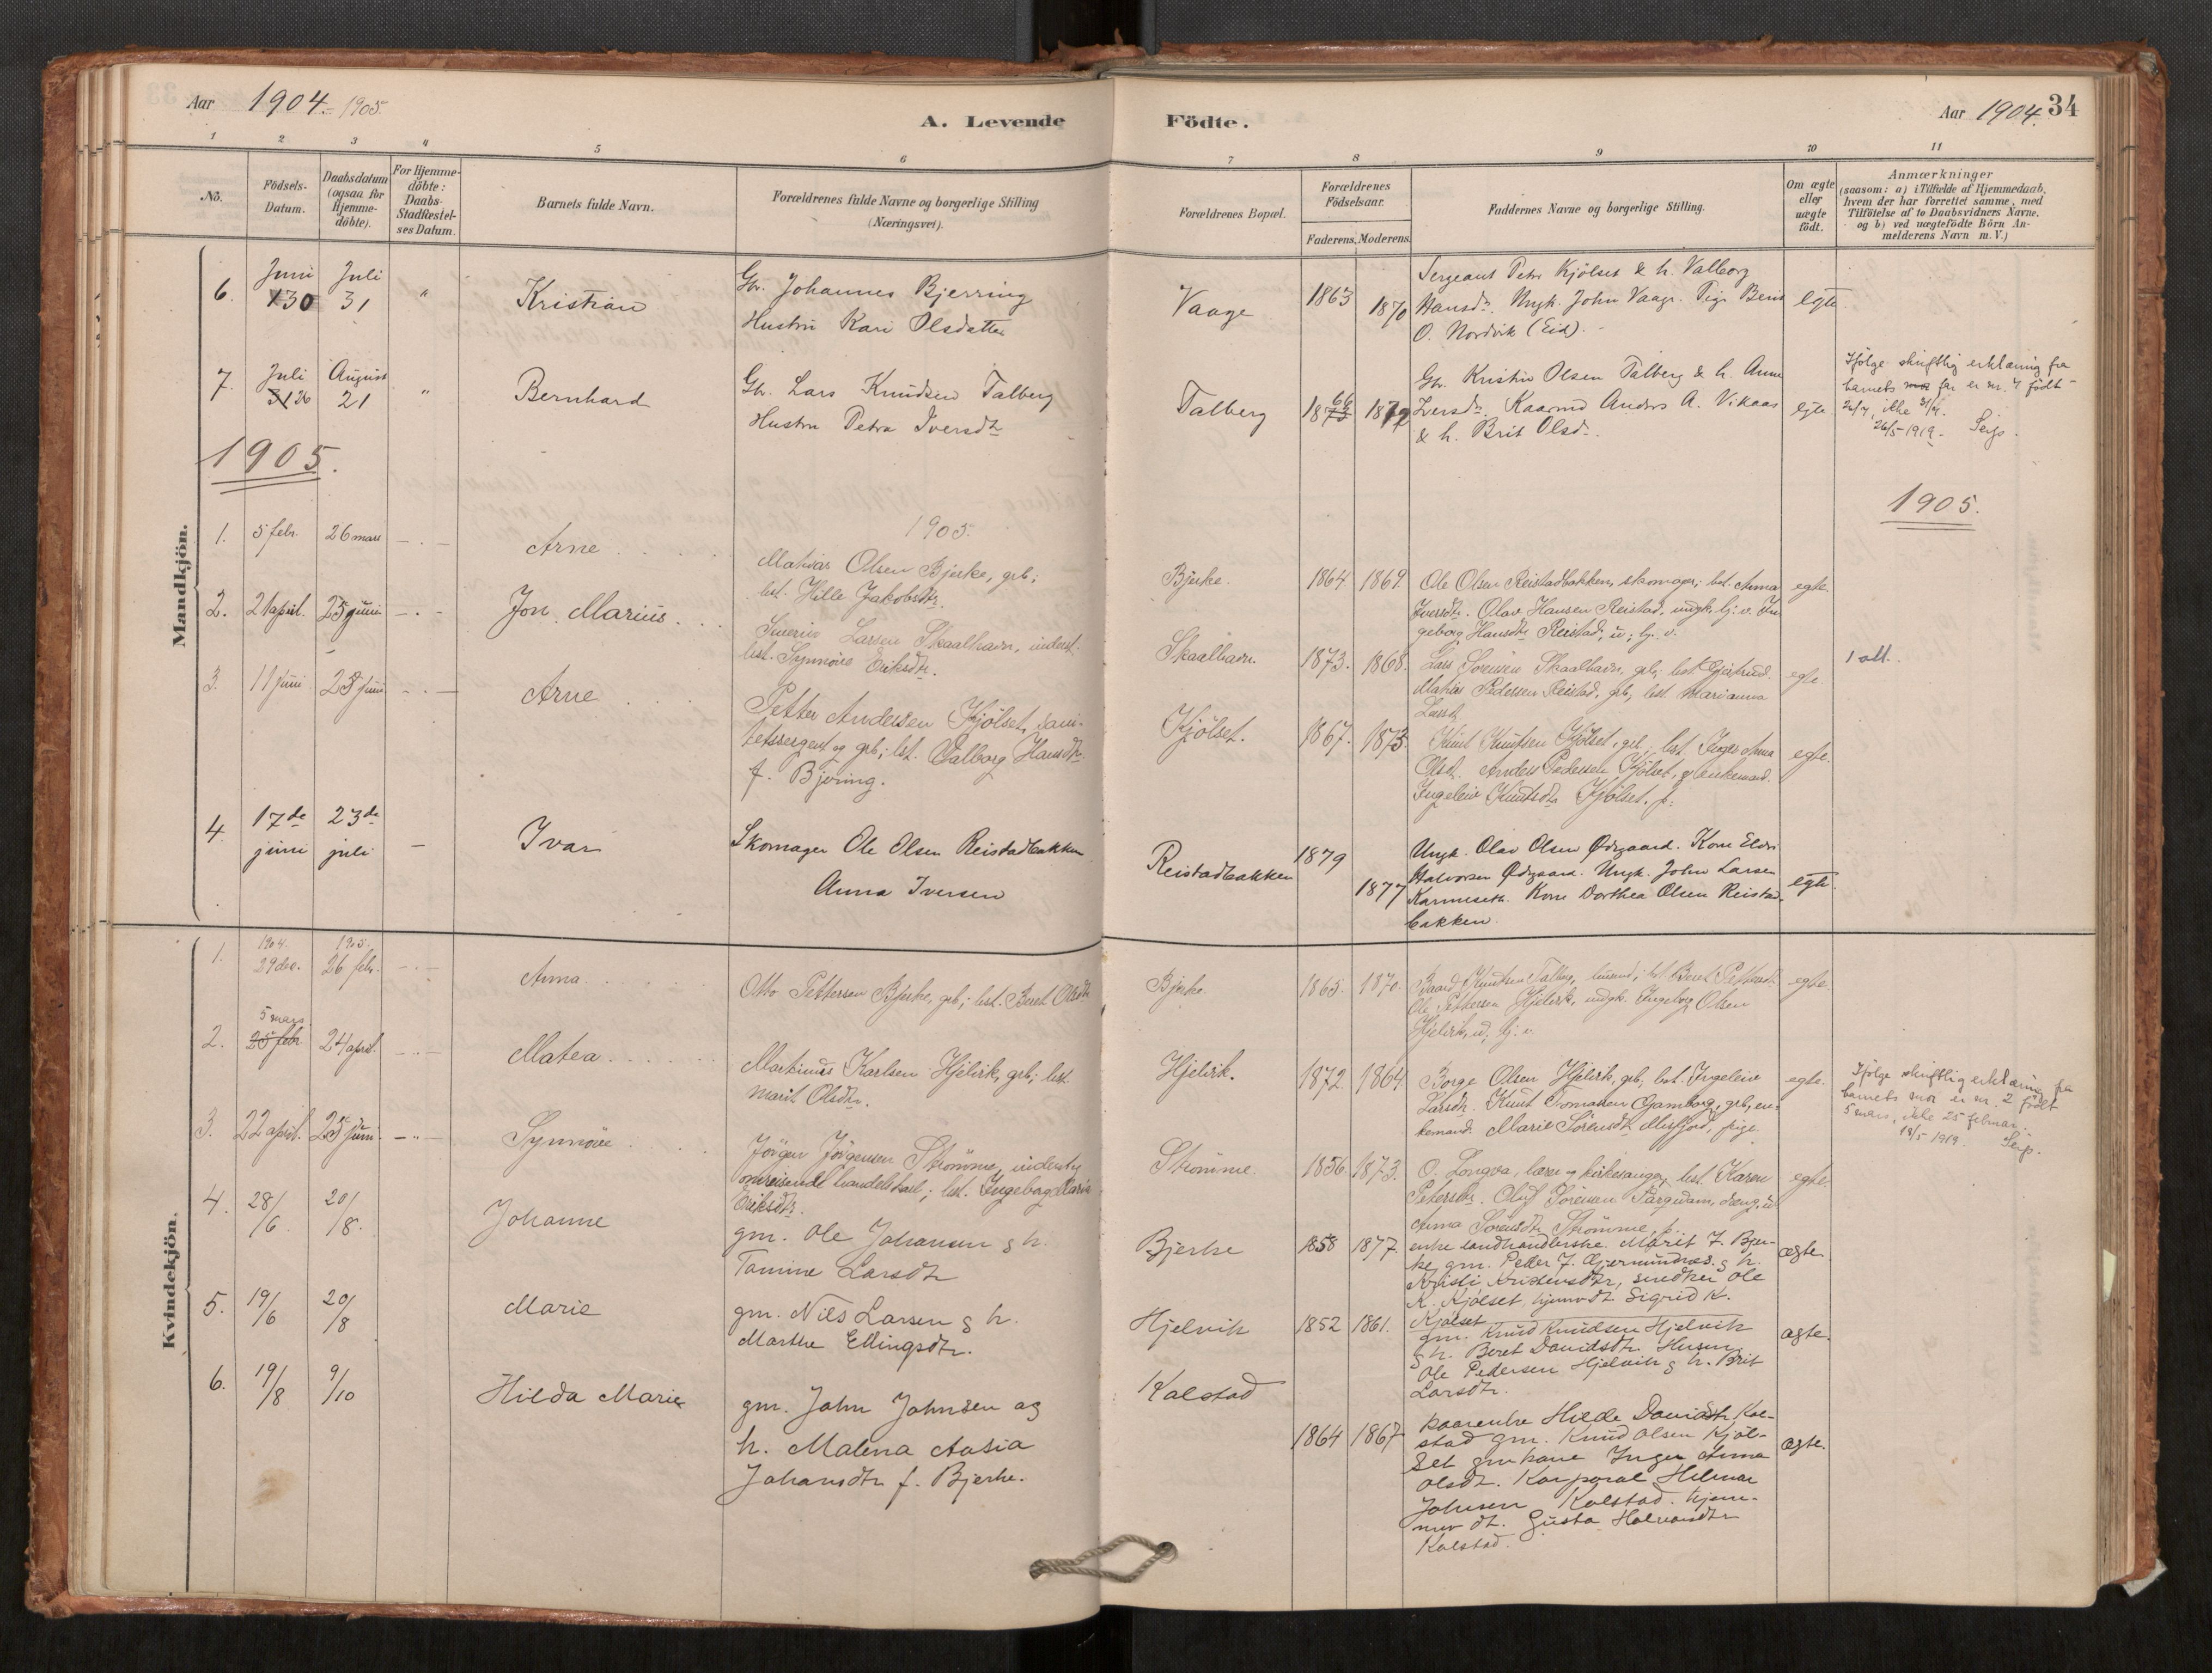 Aar 1904.-1905.
A. Levende Födte.
Aar 1904. 34
1 2 3 4 5 6 7 8 9 10 11
No.
Födsels-Datum.
Daabsdatum (ogsaa for Hjemme-döbte).
For Hjemme-döbte: Daabs-Stadfæstel-ses Datum.
Barnets fulde Navn.
Forældrenes fulde Navne og borgerlige Stilling (Næringsvei).
Forældrenes Bopæl.
Forældrenes Födselsaar.
Faderens. Moderens.
Faddernes Navne og borgerlige Stilling.
Om ægte eller uægte födt.
Anmærkninger
(saasom: a) i Tilfælde af Hjemmedaab,
hvem der har forrettet samme, med
Tilföielse af to Daabsvidners Navne,
og b) ved uægtefödte Börn An-
melderens Navn m. V.)
Mandkjön.
6. Juni 30 Juli 31 " Kristian
Gbr. Johannes Bjerring
Hustru Kari Olsdatter
Vaage 1863 1870
Sergeant Petr Kjölset & h. Valborg
Hansdr. Ungk. John Vaage. Pige Berit
O. Nordvik (Eid).
egte.
7. Juli 31 26 August 21 " Bernhard
Gbr. Lars Knudsen Talberg
Hustru Petra Iversdtr
Talberg 1873 66 1872
Gbr. Kristen Olsen Talberg & h. Anne
Iversdr. Kaarmd Anders A. Vikaas
& h. Brit Olsd.
egte.
Ifölge skriftlig erklæring fra
barnets mor far er nr. 7 födt
26/7, ikke 31/7.
26/5-1919.
1905.
1905.
1905.
1. 5 febr. 26 mars Arne
Mathias Olsen Bjerke, grb;
hst. Hille Jakobsdtr.
Bjerke. 1864 1869.
Ole Olsen Reistadbakken, skomager; hst. Anna
Iversdtr. Olav Hansen Reistad, ungk. hj. v. In
geborg Hansdtr Reistad, u; hj. v.
egte.
2. 21 april. 25 juni Jon Marius
Severin Larsen Skaalhavn, inderst.
hst. Synnöve Eriksdtr.
Skaalhavn. 1873. 1868.
Lars Sörensen Skaalhavn, grb; hst. Gjertrud.
Mathias Pedersen Reistad, grb; hst. Marianna
Larsd.
egte.
1 alt.
3. 11 juni 25 juni Arne
Petter Andersen Kjölset, sani-
tetssergent og grb; hst. Valborg Hansdtr
f. Bjering.
Kjölset. 1867. 1873.
Knut Knutsen Kjölset, grb; hst. Inger Anna
Olsd. Anders Pedersen Kjölset, enkemand.
Ingeleiv Knutsdtr Kjölset, p.
egte.
4. 17de juni 23de juli - Ivar
Skomager Ole Olsen Reistadbakken
Anna Iversen
Reistadbakken 1879 1877
Ungk. Olav Olsen Ödegaard. Kone Elen
Halvorsen Ödegaard. Ungk. John Larsen
Kone Dorthea Olsen Reistad-
bakken.
egte.
Kvindekjön.
1. 1904. 29 dec. 1905. 26 febr. Anna
Otto Pettersen Bjerke, grb; hst. Beret Olsdtr
Bjerke. 1865. 1870.
Baard Knutsen Talberg, hst. Beret Pettersdtr.
Ole Pettersen Hjelvik, ungk. Ingeborg Olsen
Hjelvik, u; hj. v.
egte.
2. 5 mars 25 febr 24 april. Matea
Martinus Karlsen Hjelvik, grb; hst.
Marit Olsdtr.
Hjelvik. 1872. 1864.
Borge Olsen Hjelvik, grb; hst. Ingeleiv
Larsdtr. Knut Tomassen Gjamborg, grb, en-
kemand. Marie Sörensdtr Misfjord, pige.
egte.
Ifölge skriftlig erklæring fra
barnets mor er nr. 2 födt
5 mars, ikke 25 februar.
18/5 1919.
3. 22 april. 25 juni Synnöve
Jörgen Jörgensen Strömme, inderst,
omreisende handelskarl; hst. Ingeborg Maria
Eriksdtr.
Strömme. 1856. 1873.
O. Longva, lærer og kirkesanger, hst. Karen
Petersdtr. Oluf Sörensen
Anna Sörensdtr Strömme, p.
egte.
4. 28/6 20/8. Johanne
gm. Ole Johansen g h.
Tomine Larsdtr
Bjerke 1858 1877.
enke landhandlerske Marit J. Bjer-
ke gm. Peder J. Gjermundnes. g h.
Kristi Kristensdtr, snedker Ole
K. Kjölset, hjemvdt Sigrid K.
Kjölset
ægte.
5. 19/6 20/8 Marie
gm. Nils Larsen g h.
Marthe Ellingsdtr.
Hjelvik 1852 1861.
gm. Knud Knudsen Hjelvik
g h. Beret Davidsdtr. Husm.
Ole Pedersen Hjelvik g h. Brit
Larsdtr.
ægte.
6. 19/8 9/10 Hilda Marie
gm. John Johnsen og
h. Malena Aasia
Johansdtr f. Bjerke.
Kalstad 1864 1867
kaarenke Hilde Davidsdtr Kal-
stad gm. Knud Olsen Kjöl-
set gmkone Inger Anna
Olsdt. Korporal Hilmar
Johnsen Kalstad. hjem-
mv dt. Gusta Halvorsdtr
Kalstad.
ægte.